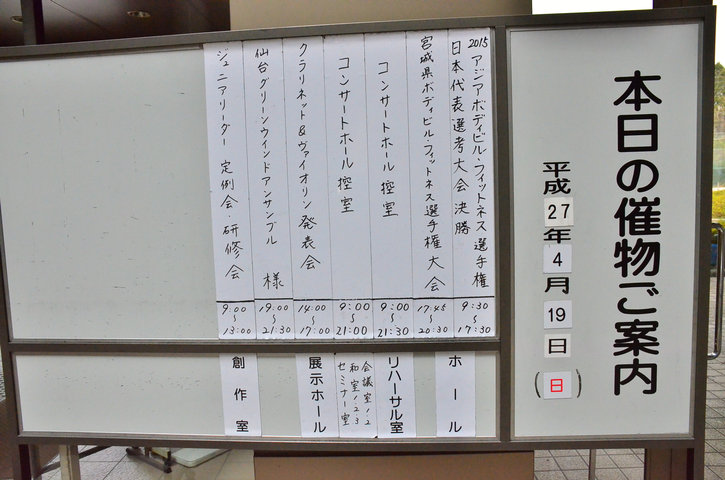 本日の催物ご案内
平成27年4月19日(日)
2015アジアボディビル・フィットネス選手権
日本代表選考大会 決勝
9:30
〜
17:30
宮城県ボディビル・フィットネス選手権大会
17:45
〜
20:30
ホール
コンサートホール 控室
9:00
〜
21:30
リハーサル室
コンサートホール 控室
9:00
〜
21:00
会議室1・2
和室1・2・3
セミナー室
クラリネット&ヴァイオリン 発表会
14:00
〜
17:00
展示ホール
仙台グリーンウインドアンサンブル 様
19:00
〜
21:30
ジュニアリーダー 定例会・研修会
9:00
〜
13:00
創作室